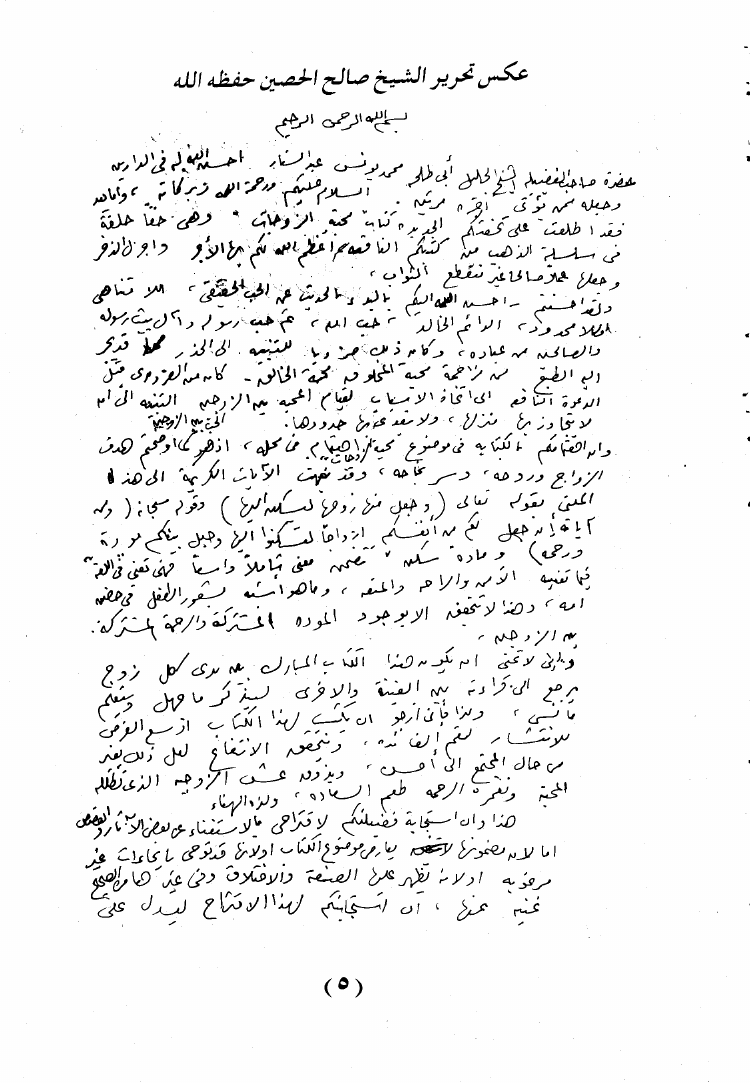 عكس تحرير الشيخ صالح الحصين حفظه الله
بسم الله الرحمن الرحيم
حضرة صاحب الفضيلة الشيخ الجليل أبي طلحة محمد يونس عبد الستار احسن الله له في الدارين
وجعله ممن يؤتى أجره مرتين . السلام عليكم ورحمة الله وبركاته ، وأما بعد
فقد اطلعت على تحفتكم الجديدة كتاب " محبة الزوجات " وهي حقا حلقة
في سلسلة الذهب من كتبكم النافعة أعظم الله لكم بها الأجر واجزل الذخر
وجعلها عملا صالحا غير منقطع الثواب ،
ولقد احسنتم - احسن الله اليكم بالبدء بالحديث عن الحب الحقيقي ، اللا متناهي
اللا محدود ، الدائم الخالد ، حب الله ، ثم حب رسوله وآل بيت رسوله
والصالحين من عباده ، وكان ذلك ضروريا للتنبيه الى الحذر قد يجر
اليه الطبع من مزاحمة محبة المخلوق محبة الخالق - كان من الضروري قبل
الدعوة النافعة الى اتخاذ الاسباب لقيام المحبة بين الزوجين التنبه الى أن
لا يتجاوز بها منزلها ، ولا يتعدى بها حدودها .
وان اهتمامكم بالكتابة في موضوع محبة الزوجات اهتمام في محله ، اذ هو كما اوضحتم هدف
الزواج وروحه ، وسر نجاحه ، وقد نبهت الآيات الكريمة الى هذا
المعنى بقوله تعالى ( وجعل منها زوجها ليسكن اليها ) وقوله سبحانه ( ومن
آياته أن جعل لكم من أنفسكم ازواجا لتسكنوا اليها وجعل بينكم مودة
ورحمة ) ومادة " سكن " تتضمن معنى شاملا واسعا فهي تعني في اللغة
فيما تعنيه الأمن والراحة والمتعة ، وما هو أشبه بشعور الطفل في حضن
امه ، وهذا لا يتحقق الا بوجود المودة المشتركة والرحمة المشتركة .
بين الزوجين ،
وإني لأتمنى ان يكون هذا الكتاب المبارك بين يدي كل زوج
يرجع الى قراءته بين الفينة والاخرى ليتذكر ما جهل ويتعلم
ما نسي ، ولذا فإني أرجو ان يكتب لهذا الكتاب اوسع الفرص
للانتشار لتعم الفائدة ، ويتحقق الانتفاع لعل ذلك يغير
من حال المجتمع الى أحسن ، ويذوق عش الزوجية الذي تظلله
المحبة وتغمره الرحمة طعم السعادة ، ولذة الهناء
هذا وان استجابة فضيلتكم لاقتراحي بالاستغناء عن بعض الآثار والقصص
اما لان مضمونها يعارض موضوع الكتاب او لانها قد توحي بإيحاءات غير
مرغوبة او لانه يظهر عليها الصنعة والاختلاق وفي غيرها من الصحيح
غنية عنها ، أن استجابتكم لهذا الاقتراح ليدل على
(٥)